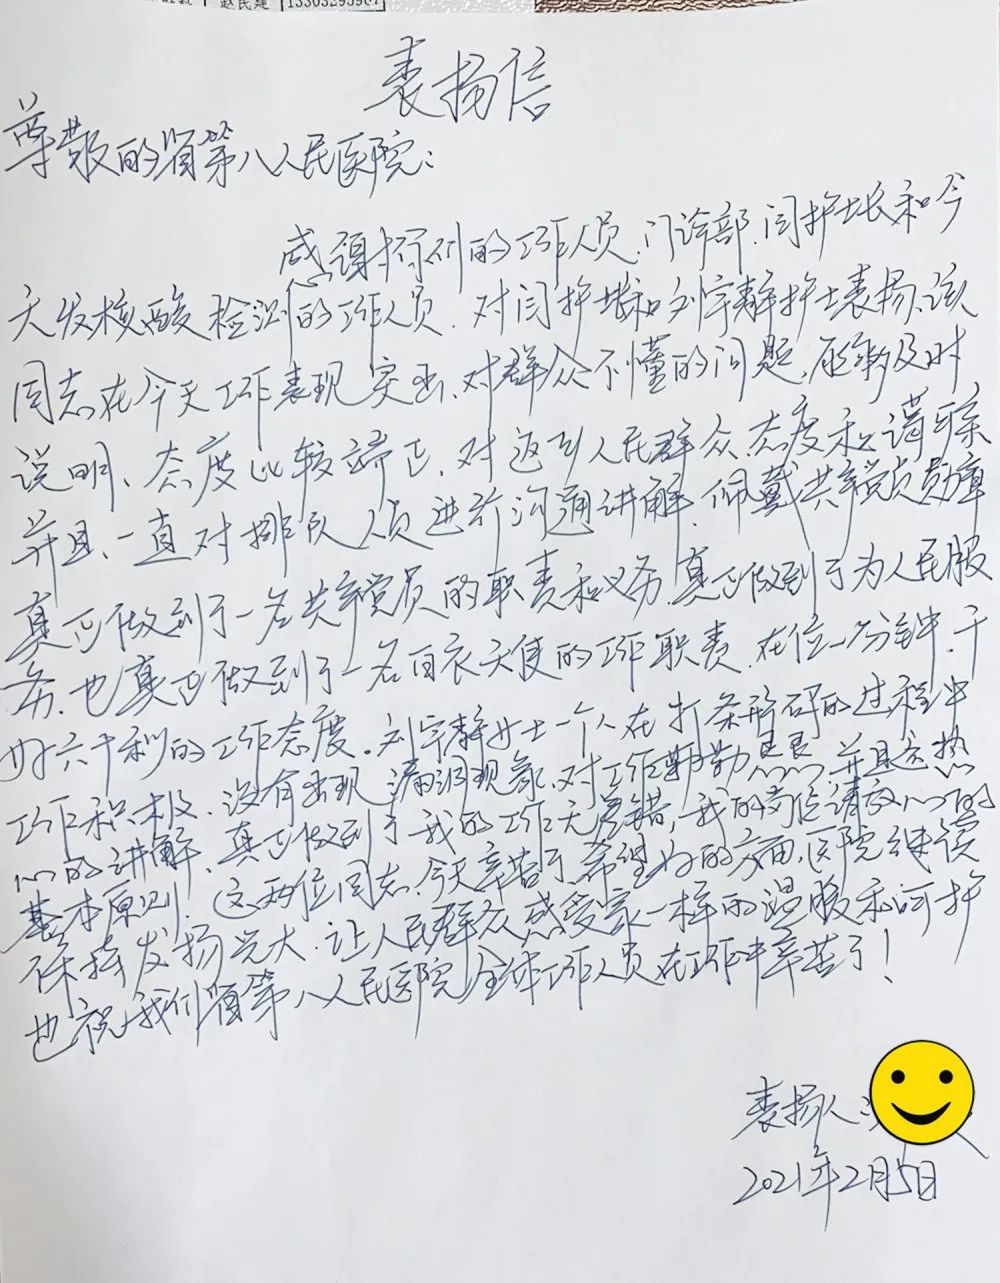 赵民建 13303295967
表扬信
尊敬的省第八人民医院:
感谢 的工作人员、门诊部、闫护士长和今
天发核酸检测的工作人员. 对闫护士长和刘宇静护士表扬、该
同志在今天工作表现突出、对群众不懂的问题、 及时
说明、态度比较端正、对返乡人民群众态度和蔼可亲
并且、一直对排队人员进行沟通讲解、佩戴共产党员勋章
真正做到了一名共产党员的职责和义务、真正做到了为人民服
务、也真正做到了一名白衣天使的工作职责、在位一分钟、干
好六十秒的工作态度。刘宇静女士一个人在打条形码的过程中
工作积极、没有出现漏洞现象、对工作勤勤恳恳、并且 热
心的讲解、真正做到了我的工作无差错，我的岗位请放心的
基本原则、这两位同志、今天辛苦了、希望好的方面，医院继续
保持发扬光大、让人民群众感受家一样的温暖和呵护
也祝我们省第八人民医院全体工作人员在工作中辛苦了！
表扬人:
2021年2月5日